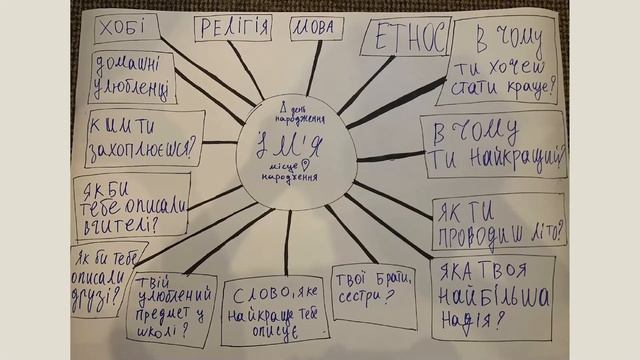 ХОБІ
РЕЛІГІЯ
МОВА
ЕТНОС
В ЧОМУ
ТИ ХОЧЕШ
СТАТИ КРАЩЕ?
ДОМАШНІ
УЛЮБЛЕНЦІ
КИМ ТИ
ЗАХОПЛЮЄШСЯ?
день
народження
ІМ'Я
місце
народження
В ЧОМУ
ТИ НАЙКРАЩИЙ?
ЯК БИ
ТЕБЕ ОПИСАЛИ
ВЧИТЕЛІ?
ЯК ТИ
ПРОВОДИШ ЛІТО?
ЯК БИ ТЕБЕ
ОПИСАЛИ
ДРУЗІ?
ТВІЙ
УЛЮБЛЕНИЙ
ПРЕДМЕТ У
ШКОЛІ?
СЛОВО, ЯКЕ
НАЙКРАЩЕ ТЕБЕ
ОПИСУЄ
ТВОЇ БРАТИ,
СЕСТРИ?
ЯКА ТВОЯ
НАЙБІЛЬША
НАДІЯ?